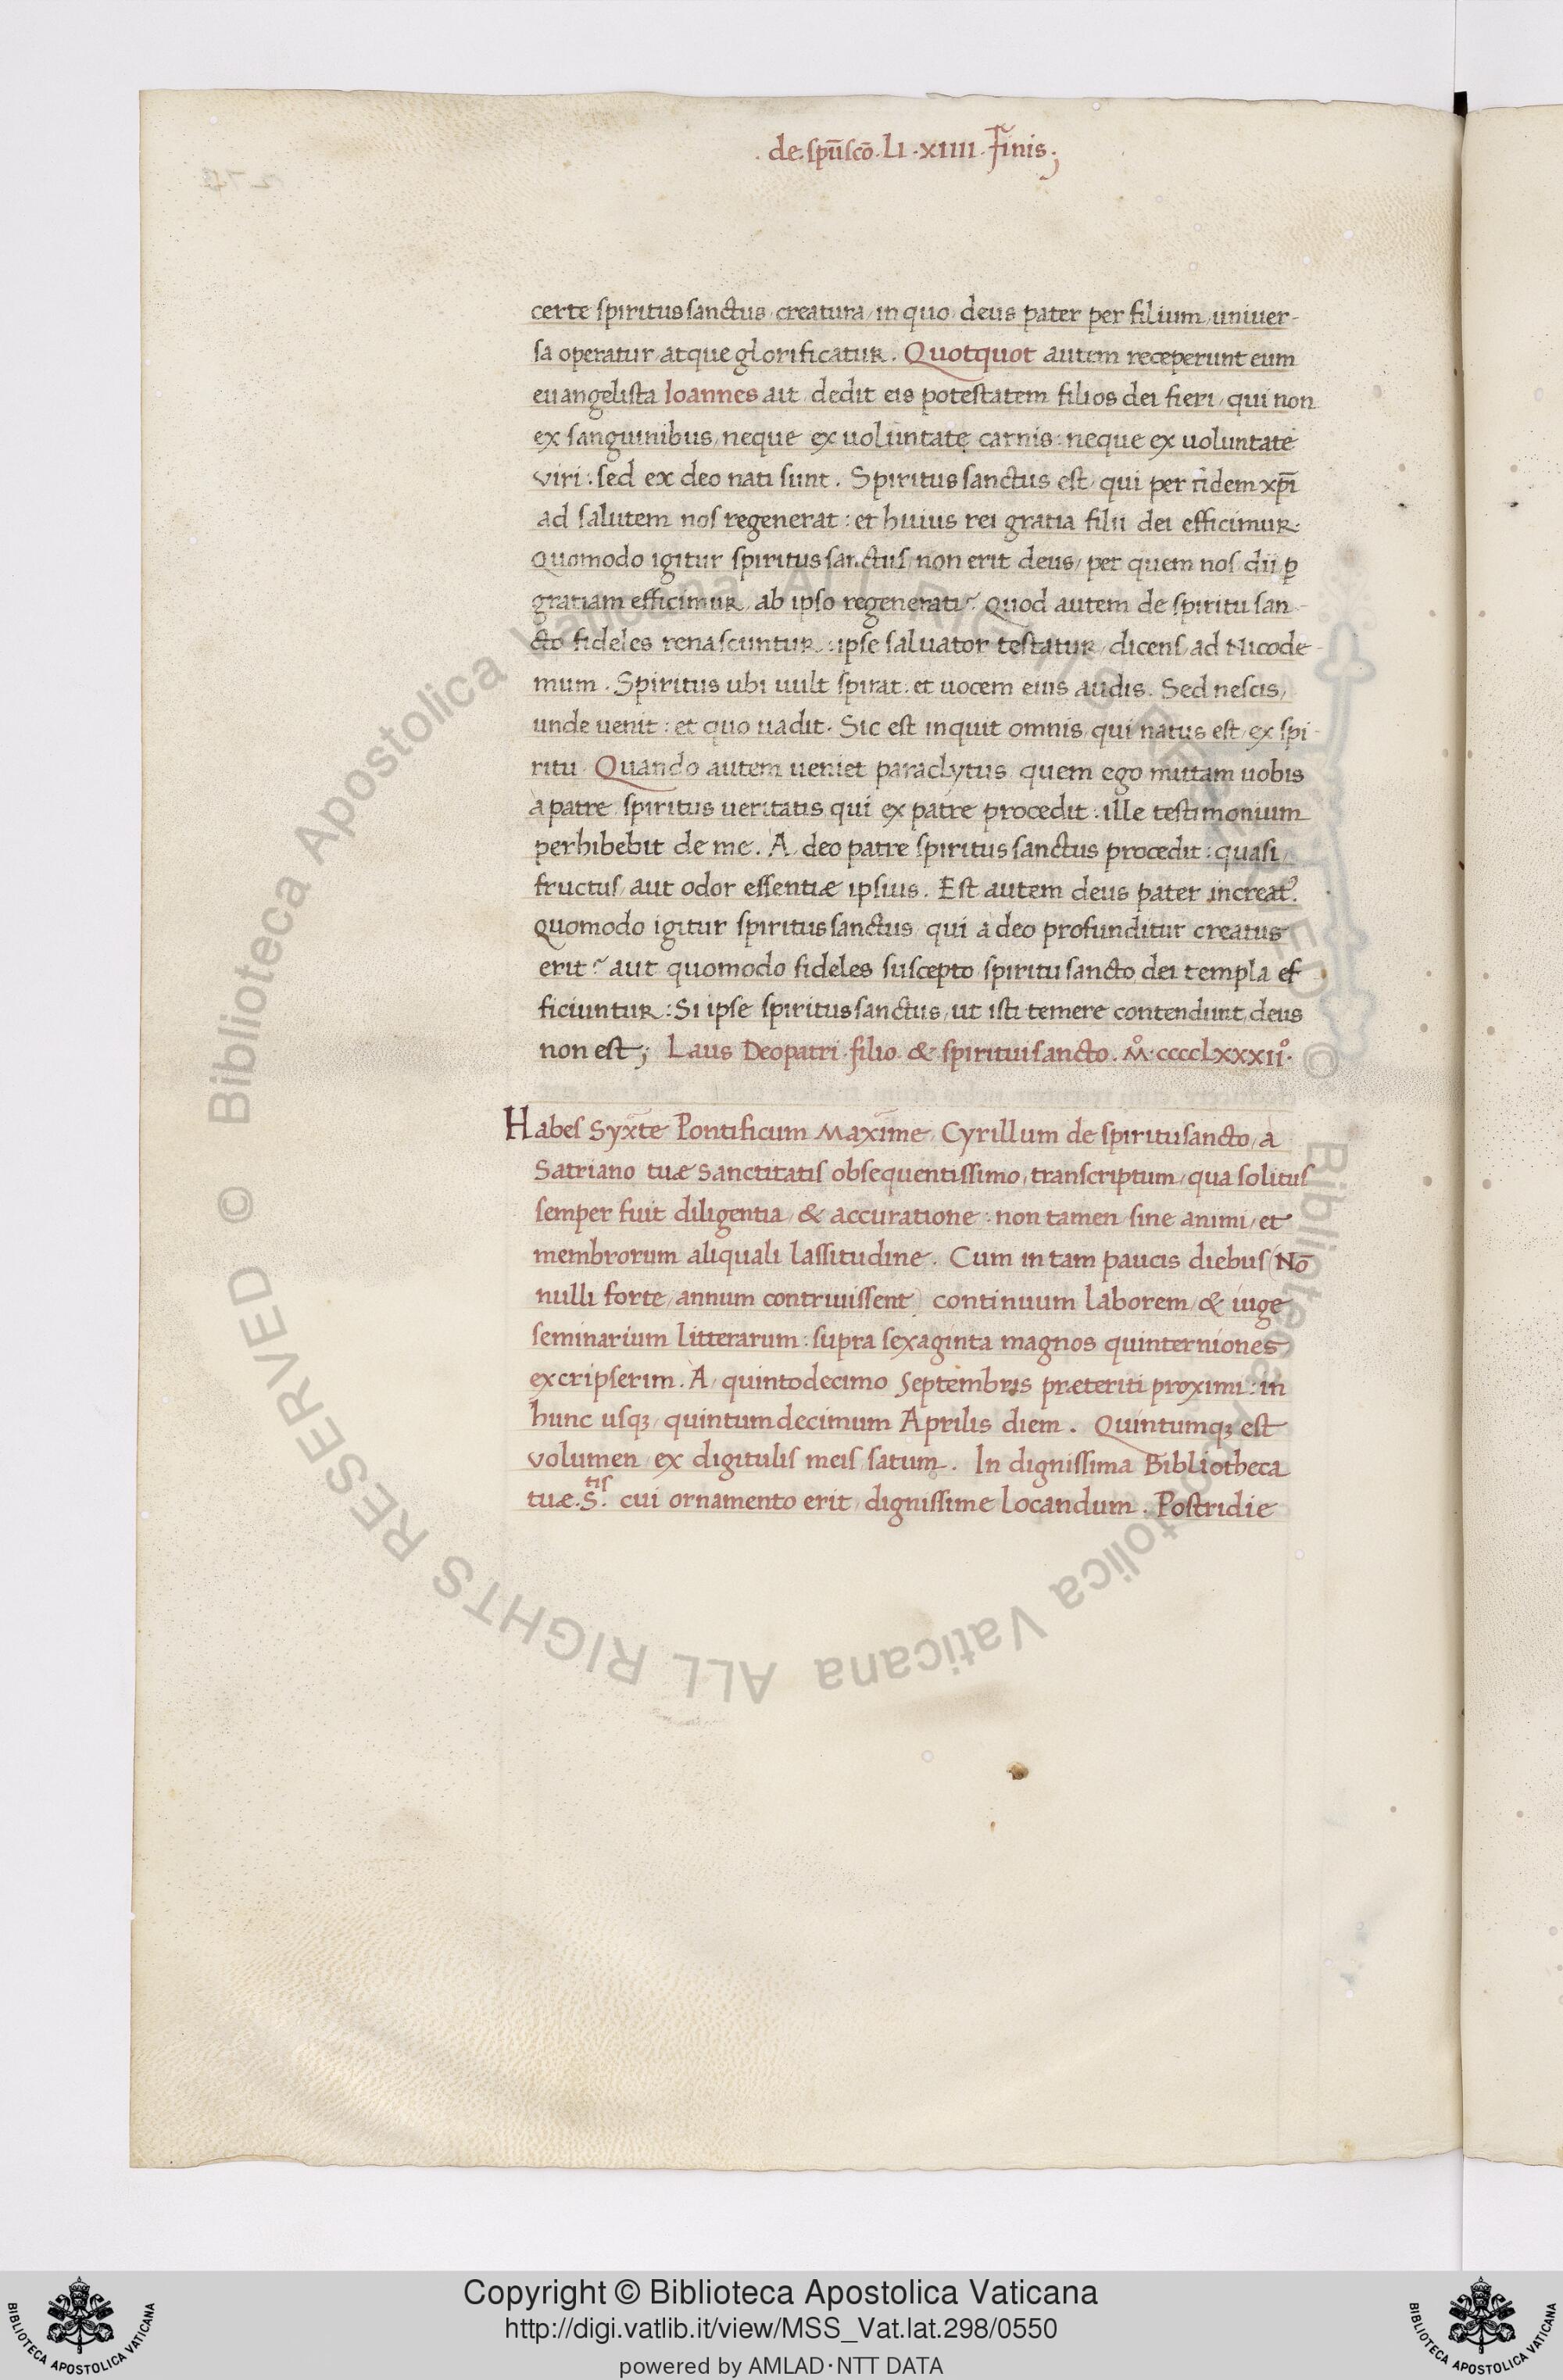 . de. spūscō. LI. XIIII. Finis.;
certe spiritus sanctus, creatura, in quo, deus pater per filium, univer-
sa operatur, atque glorificatur. Quotquot autem receperunt eum
euangelista Ioannes ait, dedit eis potestatem filios dei fieri, qui non
ex sanguinibus, neque ex uoluntate carnis: neque ex uoluntate
viri: sed ex deo nati sunt. Spiritus sanctus est, qui per fidem xpī
ad salutem nos regenerat: et huius rei gratia filii dei efficimur.
Quomodo igitur spiritus sanctus, non erit deus, per quem nos dii ꝑ
gratiam efficimur, ab ipso regenerati? Quod autem de spiritu san-
cto fideles renascuntur: ipse saluator testatur, dicens, ad Nicode-
mum. Spiritus ubi uult spirat: et uocem eius audis. Sed nescis,
unde uenit: et quo uadit. Sic est inquit omnis, qui natus est, ex spi-
ritu. Quando autem ueniet paraclytus, quem ego mittam uobis
à patre, spiritus ueritatis qui ex patre procedit: ille testimonium
perhibebit de me. A, deo patre spiritus sanctus procedit: quasi,
fructus, aut odor essentiæ ipsius. Est autem deus pater increat⁹.
Quomodo igitur spiritus sanctus, qui à deo profunditur creatus
erit? aut quomodo fideles suscepto, spiritu sancto, dei templa ef
ficiuntur: Si ipse spiritus sanctus, ut isti temere contendunt, deus
non est; Laus Deo patri. filio. & spiritui sancto. M̊. ccccLxxxii°.
Habes Syxte Pontificum Maxime, Cyrillum de spiritu sancto, à
Satriano tuæ sanctitatis obsequentissimo, transcriptum, qua solitus
semper fuit diligentia, & accuratione: non tamen sine animi, et
membrorum aliquali lassitudine. Cum in tam paucis diebus (Nō
nulli forte, annum contriuissent) continuum laborem, & iuge
seminarium litterarum: supra sexaginta magnos quinterniones
excripserim. A, quintodecimo Septembris præteriti proximi: in
hunc usqꝫ, quintumdecimum Aprilis diem. Quintumqꝫ est
volumen, ex digitulis meis satum. In dignissima Bibliotheca
tuæ. S.tis cui ornamento erit, dignissime locandum. Postridie
© Biblioteca Apostolica Vaticana ALL RIGHTS RESERVED
© Biblioteca Apostolica Vaticana ALL RIGHTS RESERVED
Copyright © Biblioteca Apostolica Vaticana
http://digi.vatlib.it/view/MSS_Vat.lat.298/0550
powered by AMLAD・NTT DATA
BIBLIOTECA APOSTOLICA VATICANA
BIBLIOTECA APOSTOLICA VATICANA